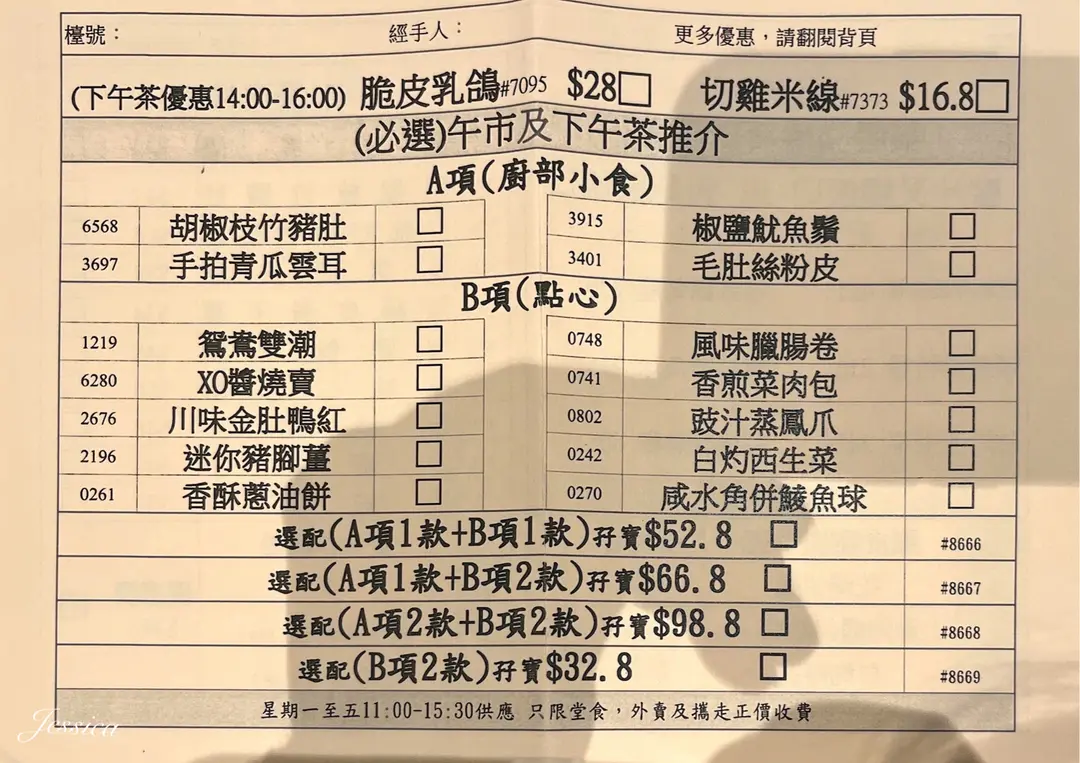 檯號： 經手人： 更多優惠，請翻閱背頁
(下午茶優惠14:00-16:00) 脆皮乳鴿#7095 $28□ 切雞米線#7373 $16.8□
(必選)午市及下午茶推介
A項(廚部小食)
6568 胡椒枝竹豬肚 □ 3915 椒鹽魷魚鬚 □
3697 手拍青瓜雲耳 □ 3401 毛肚絲粉皮 □
B項(點心)
1219 鴛鴦雙潮 □ 0748 風味臘腸卷 □
6280 XO醬燒賣 □ 0741 香煎菜肉包 □
2676 川味金肚鴨紅 □ 0802 豉汁蒸鳳爪 □
2196 迷你豬腳薑 □ 0242 白灼西生菜 □
0261 香酥蔥油餅 □ 0270 咸水角併鯪魚球 □
選配(A項1款+B項1款)孖寶$52.8 □ #8666
選配(A項1款+B項2款)孖寶$66.8 □ #8667
選配(A項2款+B項2款)孖寶$98.8 □ #8668
選配(B項2款)孖寶$32.8 □ #8669
星期一至五11:00-15:30供應 只限堂食，外賣及攜走正價收費
Jessica